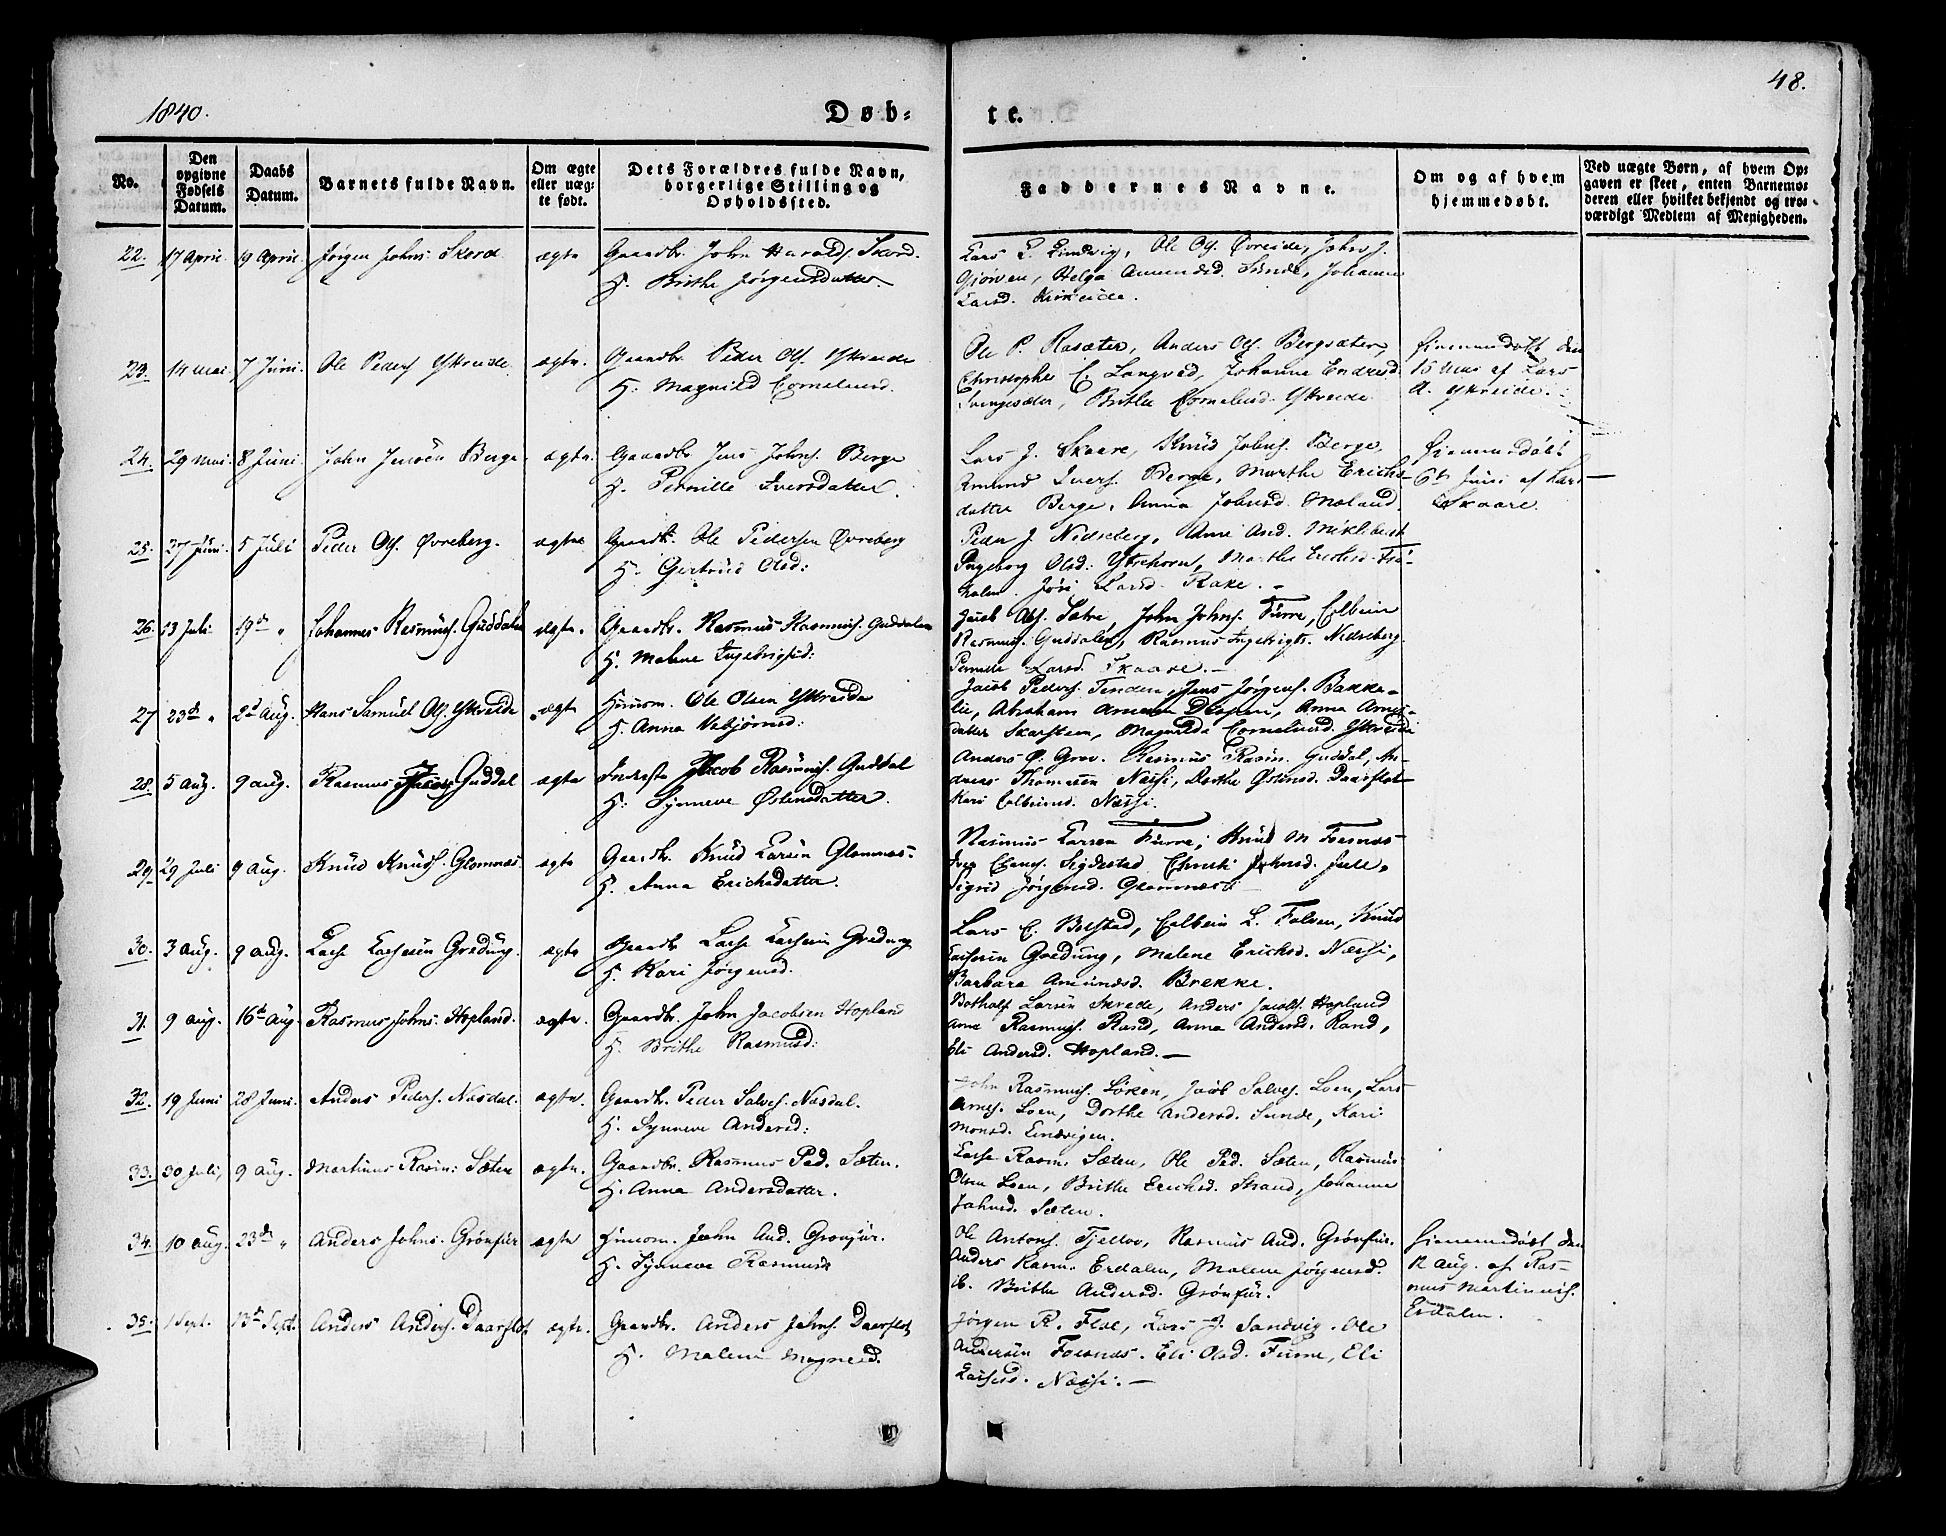 48.
1840.
Døb-
te.
No.
Den opgivne Fødsels Datum.
Daabs Datum.
Barnets fulde Navn.
Om ægte eller uægte født.
Dets Forældres fulde Navn, borgerlige Stilling og Opholdssted.
Faddernes Navne.
Om og af hvem hjemmedøbt.
Ved uægte Børn, af hvem Opgaven er skeet, enten Barnemoderen eller hvilket bekjendt og troværdigt Medlem af Menigheden.
22. 17 April 19 April Jørgen Johns. Skord ægte Gaardbr. John Haralds. Skord.
H. Brithe Jørgensdatter
Lars L. Lindvig, Ole Ols. Øvreide, John J.
Gjørven, Helga Amundsd. Sunde, Johanne
Larsd. Kirkeide.
23. 14 Mai 7 Juni Ole Peders. Ytreide ægte Gaardbr. Peder Ols. Ytreide
H. Magnild Corneliusd.
Ole P. Rasæter, Anders Ols. Bergsæter,
Christopher E. Langvad, Johanne Endresd.
Svingesæter, Brithe Corneliusd. Ytreide
Hjemmedøbt den
15 Mai af Lars
A. Ytreide.
24. 29 Mai 8 Juni John Jensen Berge ægte Gaardbr. Jens Johns. Berge
H. Pernille Iversdatter.
Lars J. Skaare, Knud Johns. Berge,
Amund Ivers. Berge, Marthe Erichs-
datter Berge, Anna Johnsd. Mæland
Hjemmedøbt
6te Juni af Lars
Skaare.
25. 27 Juni 5 Juli Peder Ols. Øvreberg. ægte Gaardbr. Ole Pedersen Øvreberg
H. Gertrud Olsd:
Peder J. Nedreberg, Anne And. Miklebust
Ingeborg Olsd. Ytrehorn, Marthe Erichsd.
Jøri Larsd. Rake.
26. 13 Juli 19de " Johannes Rasmus. Guddalen ægte. Gaardbr. Rasmus Rasmus. Guddalen
H. Malene Ingebrigtsd:
Jacob Ols. Sætre, John Johns. Furre, Colbein
Rasmus. Guddalen, Rasmus Ingebrigts. Nedreberg
Pernille Larsd. Skaare.
27 23de " 2d Aug. Hans Samuel Ols. Ytreide ægte Huusm. Ole Olsen Ytreide
H. Anna Vebjørnsd:
Jacob Peders. Tenden, Jens Jørgens. Bakke-
lie, Abraham Drageset, Anna Arnes-
datter Skarsteen, Magnilde Corneliusd. Ytreide
28. 5 Aug. 9 Aug. Rasmus Jacobs. Guddal ægte Inderste Jacob Rasmus. Guddal
H: Synneve Østensdatter.
Anders O. Grov. Rasmus Rasm. Guddal, An-
dreas Thomassen Næssi, Dorthe Østensd. Daarflot
Kari Colbeinsd. Næssi.
29. 29 Juli 9 Aug. Knud Knuds. Glomnæs. ægte Gaardbr. Knud Larsen Glomnæs.
H. Anna Erichsdatter.
Rasmus Larsen Furre, Knud M. Fosnæs
Iver Sigdestad Christi Johnsd. Fjelle,
Sigrid Jørgensd. Glomnæs
30. 3 Aug. 9 Aug. Lasse Lassesen Grødung. ægte Gaardbr Lasse Lassesen Grødung
H. Kari Jørgensd.
Lars C. Bolstad, Colbein L. Folven, Knud
Lassesen Grødung, Malene Erichsd. Næssi,
Barbara Amundsd. Brekke.
31. 9 Aug. 16de Aug. Rasmus Johns. Hopland. ægte. Gaardbr. John Jacobsen Hopland
H. Brithe Rasmusd:
Botholf Larsen Skrede, Anders Jacobs. Hopland
Arne Rasmus. Rand, Anna Andersd. Rand,
Eli Andersd. Hopland.
32. 19 Juni 28 Juni. Anders Peders. Næsdal. ægte. Gaardbr. Peder Salves. Næsdal.
H. Synneve Andersd:
John Rasmus. Loen, Jacob Salves. Loen, Lars
Arnes. Loen, Dorthe Andersd. Sunde, Kari
Monsd. Eindrigen.
33. 30 Juli, 9 Aug. Martinus Rasm: Sæten ægte. Gaardbr. Rasmus Ped. Sæten.
H. Anna Andersdatter.
Lasse Rasm. Sæten, Ole Ped. Sæten, Rasmus
Olsen Loen, Brithe Erichsd. Strand, Johanne
Johnsd. Sæten.
34. 10 Aug. 23de " Anders Johns. Grønfur ægte Huusm. John And. Grønfur.
H. Synneve Rasmusd
Ole Antons. Tjellov, Rasmus And. Grønfur.
Anders Rasm. Erdalen, Malene Jørgensd.
ib. Brithe Andersd. Grønfur.
Hjemmedøbt den
12 Aug. af Ras-
mus Martinus.
Erdalen.
35. 1 Sept. 13de Sept. Anders Anders. Daarflot ægte. Gaardbr. Anders Johns. Daarflot
H. Malene Magnesd.
Jørgen R. Floe, Lars J. Sandvig. Ole
Andersen Fosnæs. Eli Olsd. Furre, Eli
Lassesd. Næssi.